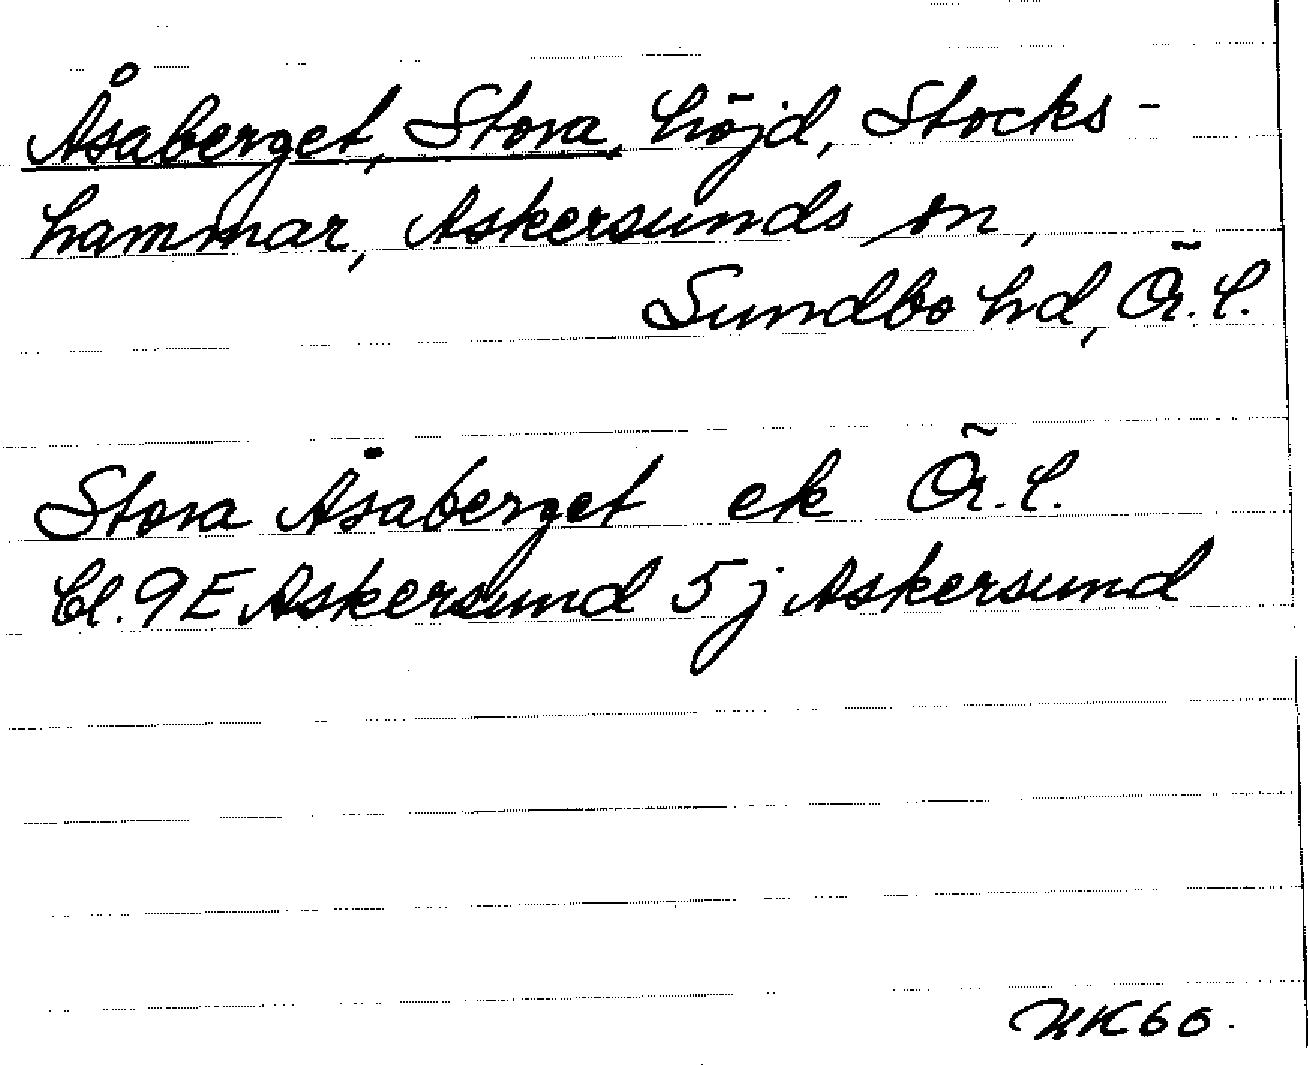 Åsaberget, Stora, höjd, Stocks-
hammar, Askersunds sn,
Sundbo hd, Ör. l.
Stora Åsaberget ek Ör. l.
Bl. 9E Askersund 5j Askersund